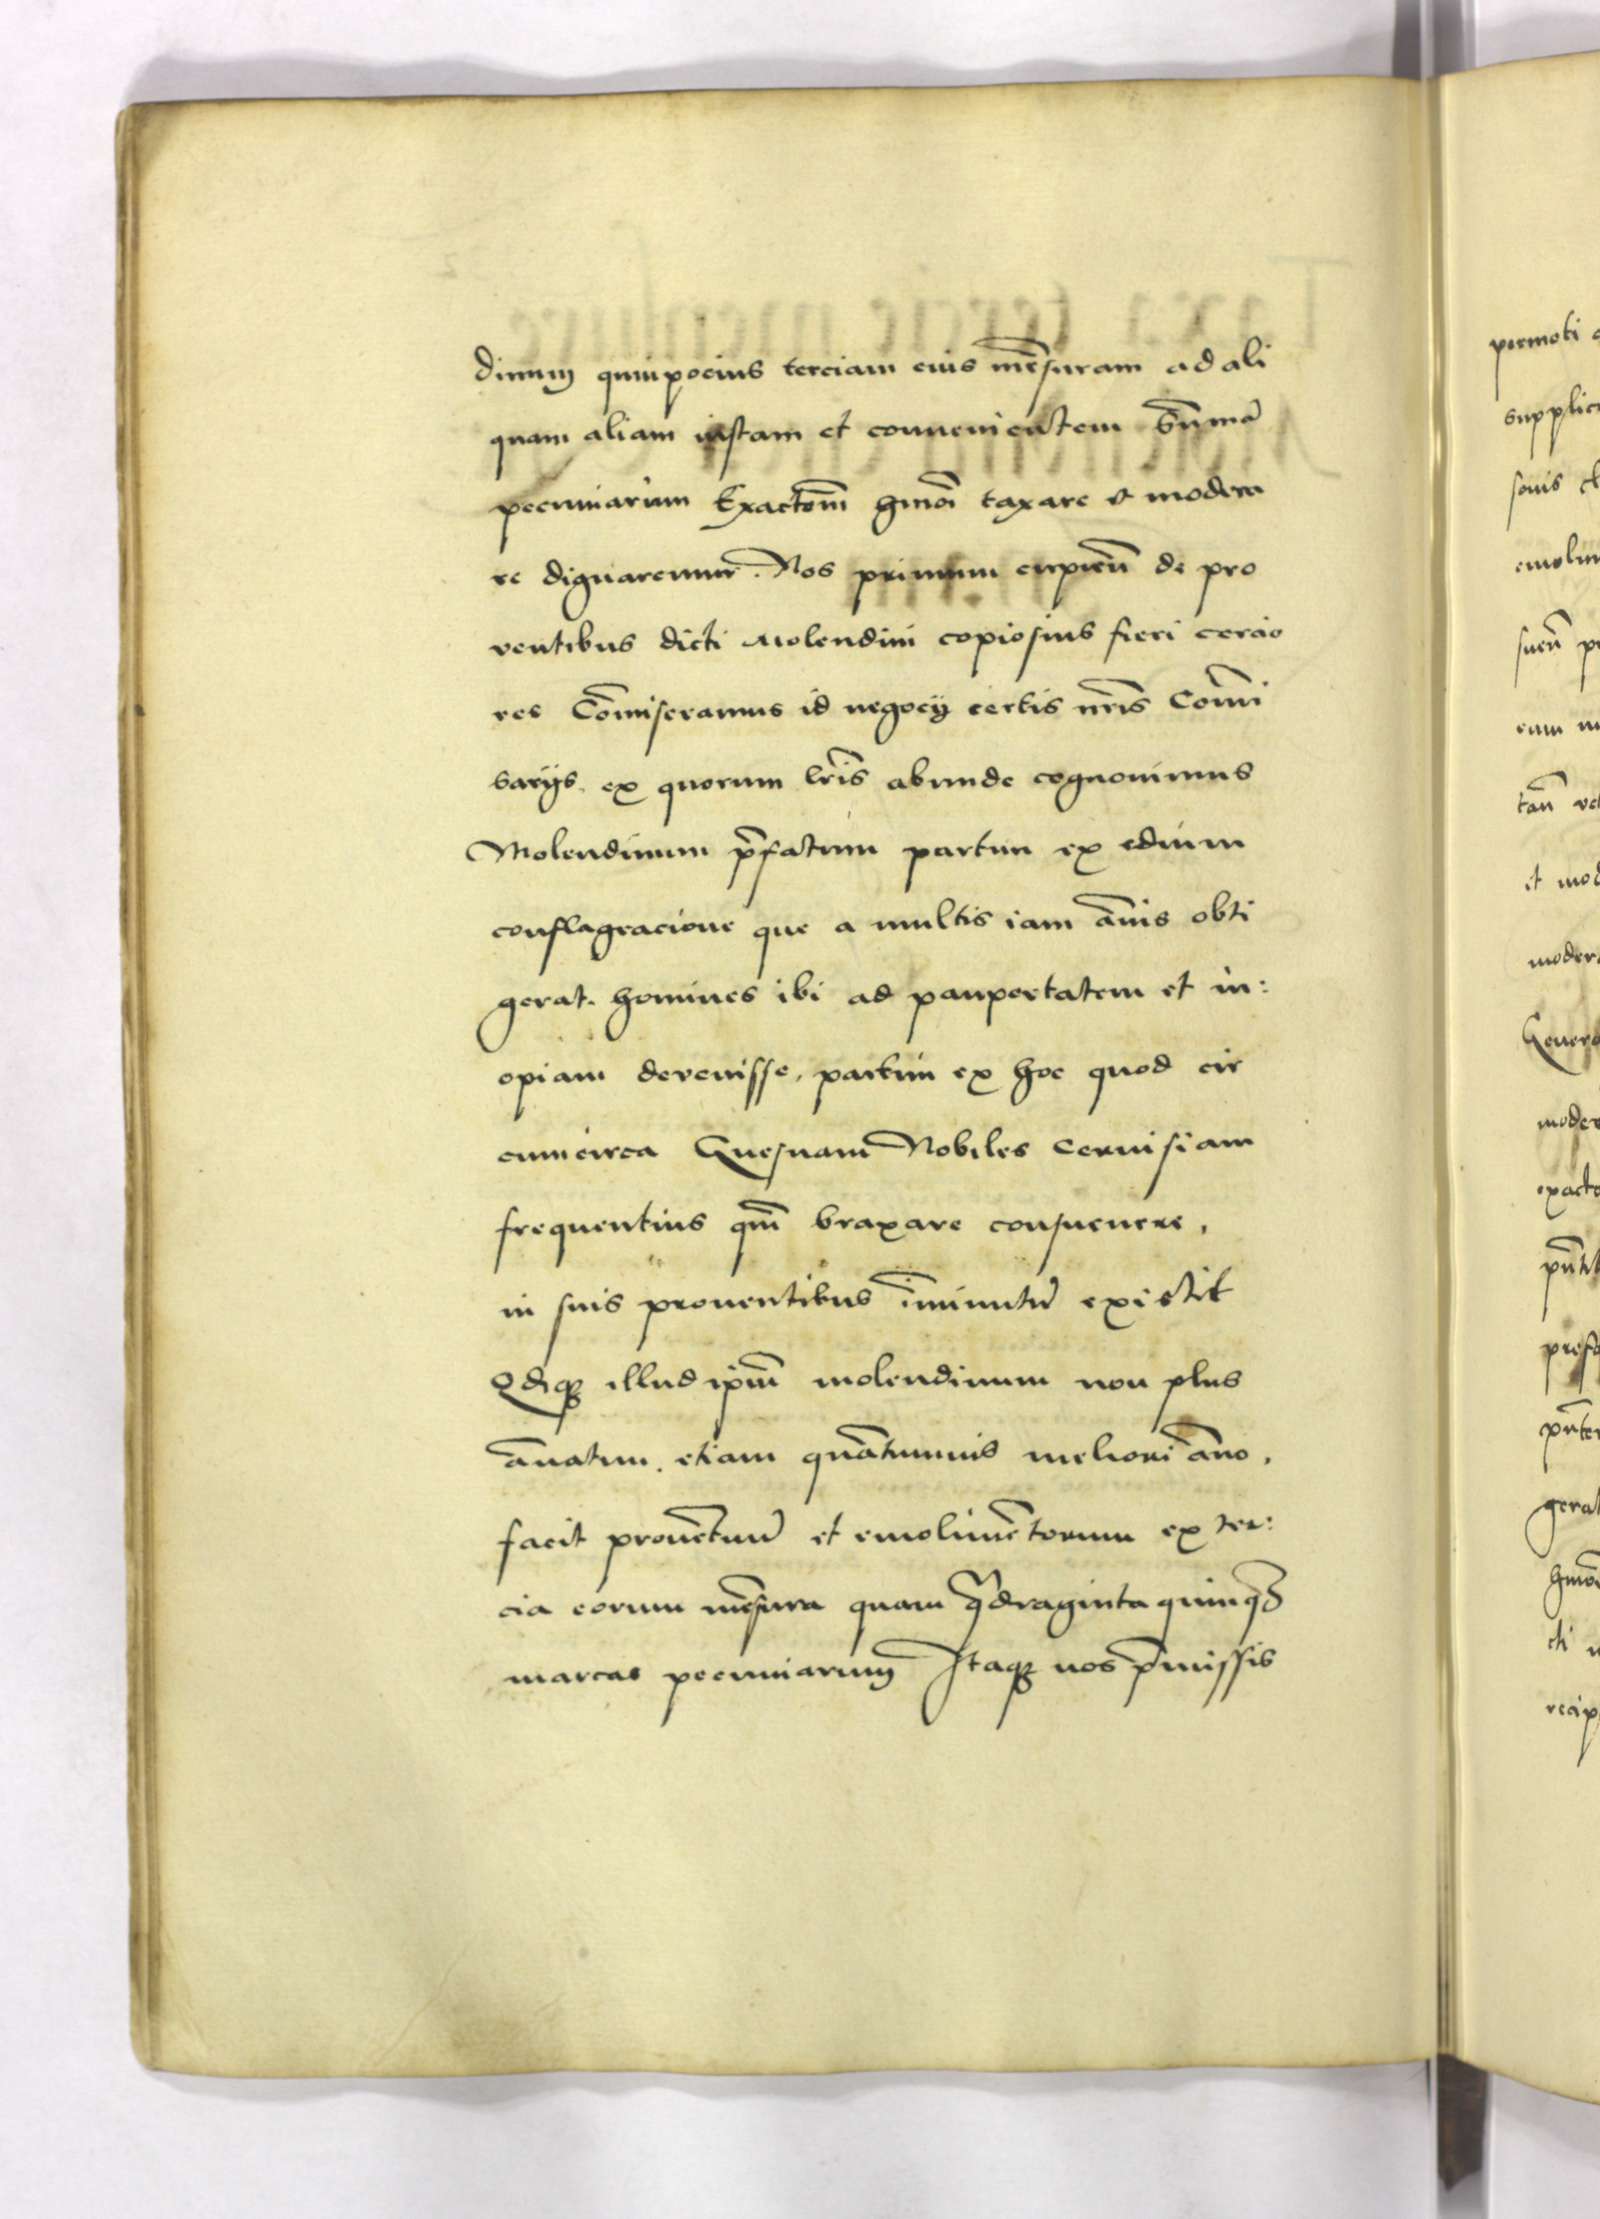 dinum quinpocius terciam eius mēsuram ad ali
quam aliam iustam et conuenientem Sūmā
pecuniarum Exactōm̄ hmōi taxare et modera
re dignaremur. Nos primum cupieñ de pro
ventibus dicti Molendini copiosius fieri cercio
res Cōmiseramus id negocij certis nr̄is Cōmi
sarijs. ex quorum lr̄is abunde cognouimus
Molendinum p̄fatum partim ex edium
conflagracione que a multis iam ānis obti
gerat. homines ibi ad paupertatem et in:
opiam devenisse, partim ex hoc quod cir
cumcirca Gnesnam Nobiles Ceruisiam
frequentius qm̄ braxare consuenere,
in suis prouentibus īminutū existit
Qdqꝫ illud ip̄m molendinum non plus
ānatim. etiam quātumuis meliori āno,
facit prouētuū et emolimētorum ex ter:
cia eorum mēsura quam q̄draginta quinqꝫ
marcas pecuniarum Itaqꝫ nos p̄missis
permoti
supplic
suis
emolu
sueñ
eum
it
moder
Genero
moder
exacto
p̄nti
prefa
p̄nte
gerat
hmōi
cti
recip
Taxa tercie mensure